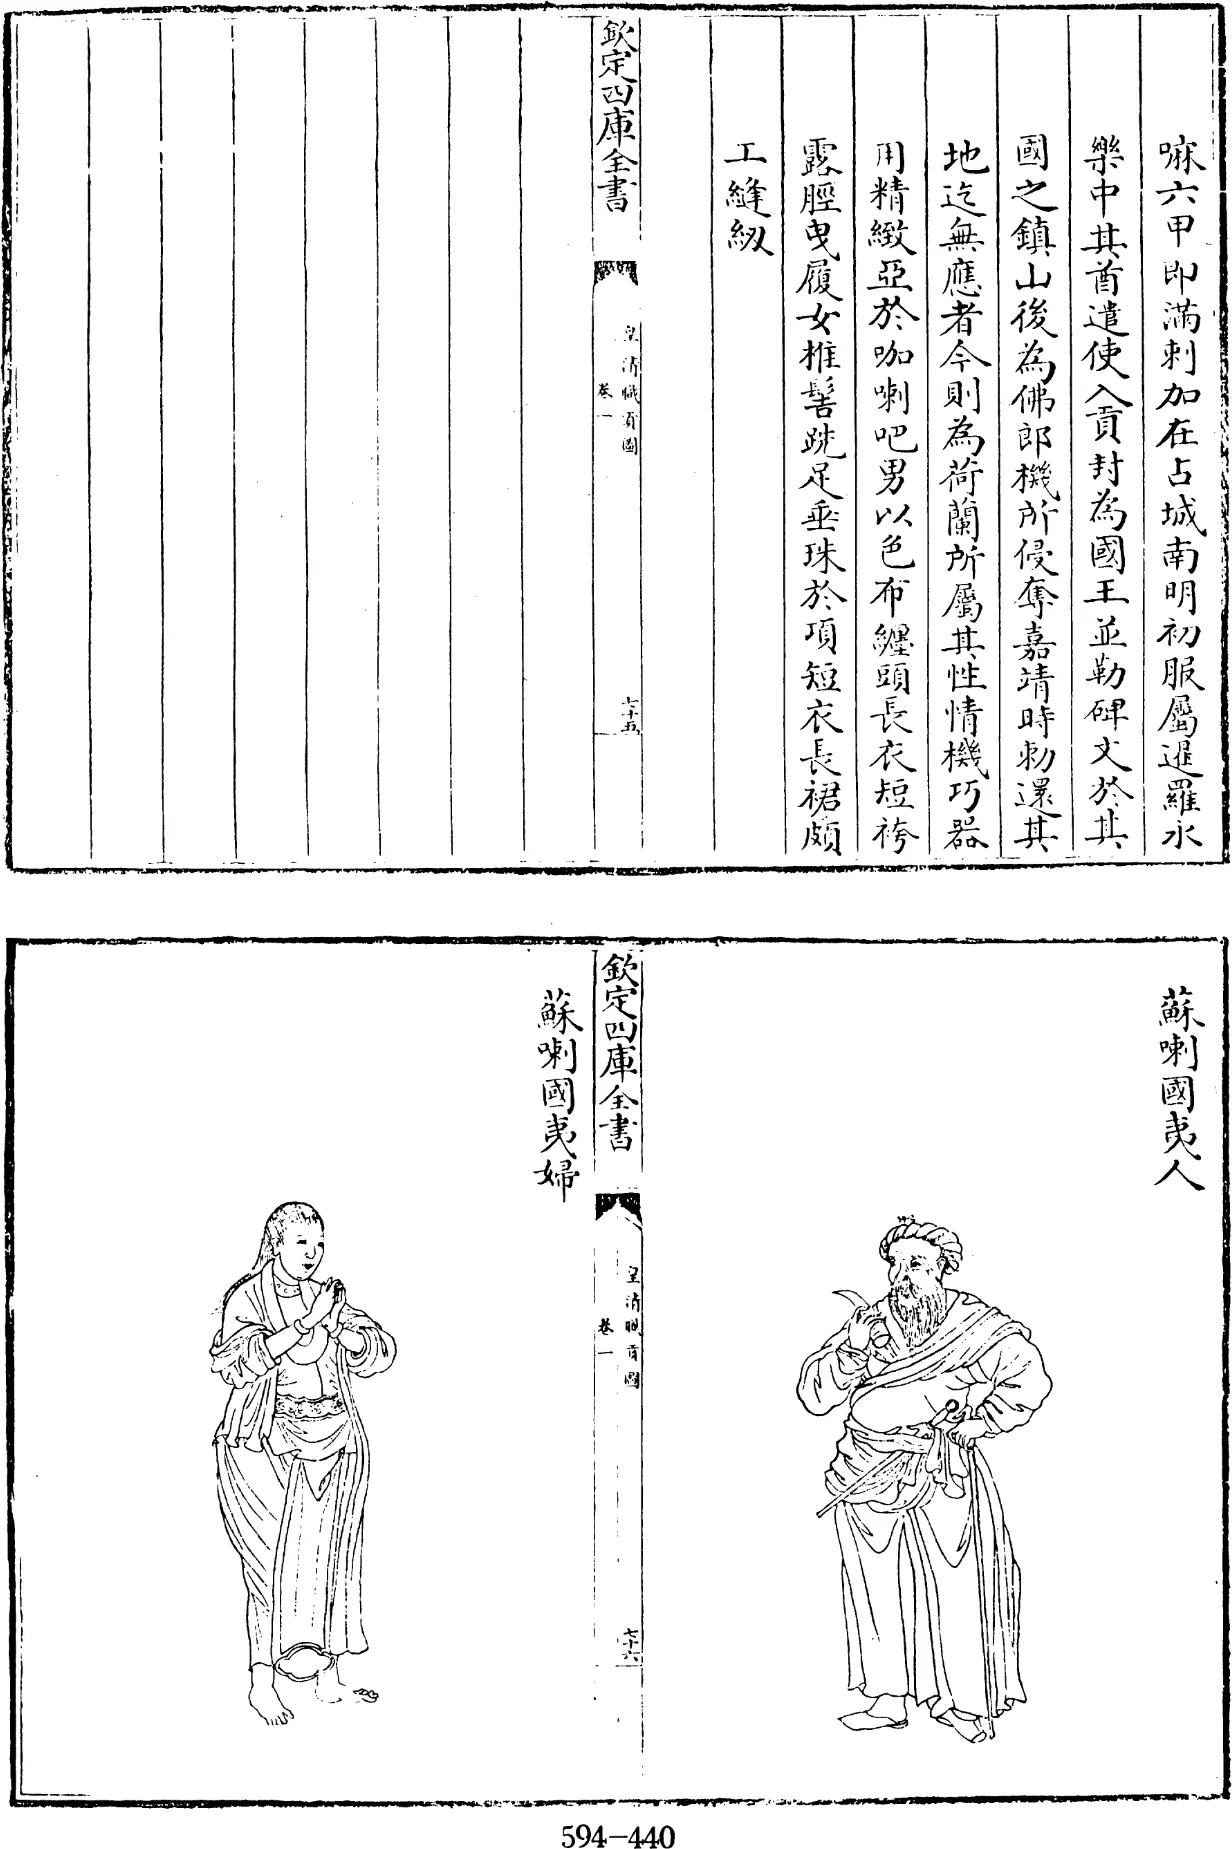 嘛六甲即滿剌加在占城南明初服屬暹羅永
樂中其酋遣使入貢封為國王並勒碑文於其
國之鎮山後為佛郎機所侵奪嘉靖時勅還其
地迄無應者今則為荷蘭所屬其性情機巧器
用精緻亞於咖喇吧男以色布纏頭長衣短袴
露脛曳履女椎髻跣足垂珠於項短衣長裙頗
工縫紉
欽定四庫全書
皇清職貢圖
卷一
七十五
蘇喇國夷人
欽定四庫全書
皇清職貢圖
卷一
七十六
蘇喇國夷婦
594-440